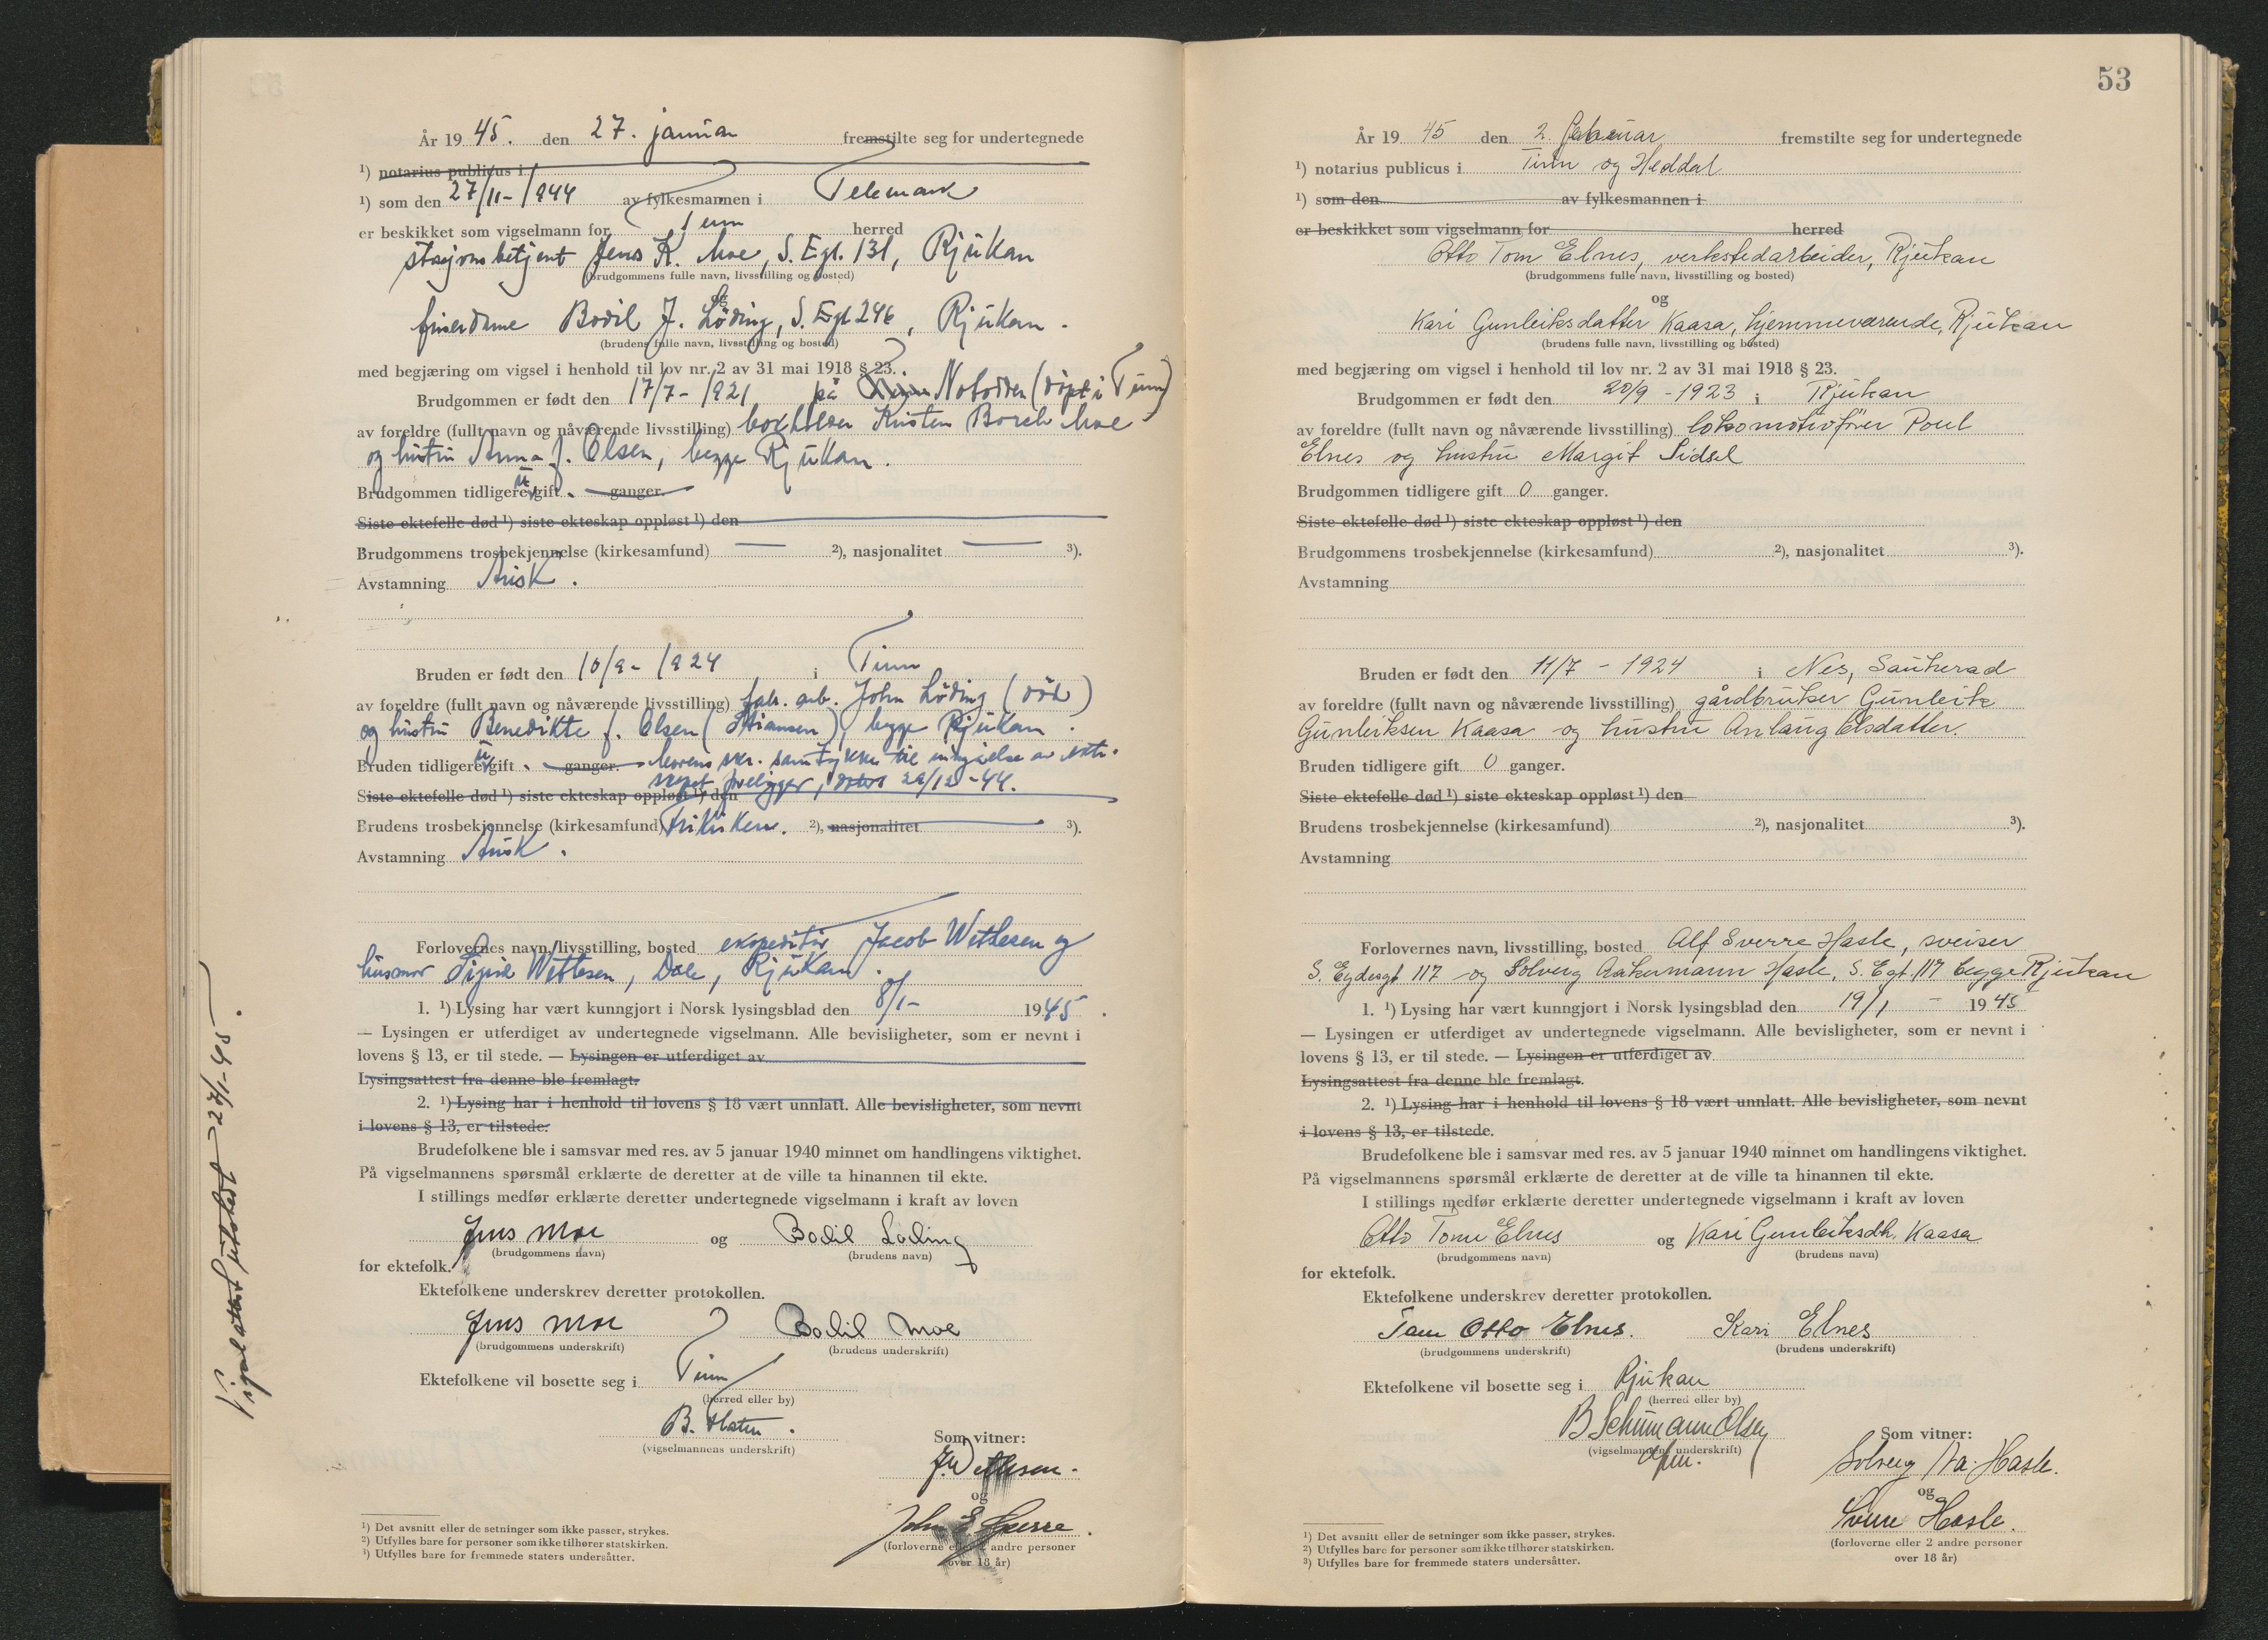 År 19 45. den 27. januar fremstilte seg for undertegnede
¹) notarius publicus i
¹) som den 27/11-1944 av fylkesmannen i Telemark
er beskikket som vigselmann for Tinn herred
stasjonsbetjent Jens K. Moe, S. Egt. 131, Rjukan
(brudgommens fulle navn, livsstilling og bosted)
og
Bodil J. Löding, S. Egt 246, Rjukan.
(brudens fulle navn, livsstilling og bosted)
med begjæring om vigsel i henhold til lov nr. 2 av 31 mai 1918 § 23.
Brudgommen er født den 17/7-1921 på Notodden (döpt i Tinn)
av foreldre (fullt navn og nåværende livsstilling) bokholder Kristen Borch Moe
og hustru Anna f. Olsen, begge Rjukan.
Brudgommen tidligere u gift. ganger.
Siste ektefelle død ¹) siste ekteskap oppløst ¹) den
Brudgommens trosbekjennelse (kirkesamfund) — ²), nasjonalitet — ³).
Avstamning Arisk.
Bruden er født den 10/9-1924 i Tinn
av foreldre (fullt navn og nåværende livsstilling) fabr. arb. John Löding (död)
og hustru Benedikte f. Olsen (Stiansen), begge Rjukan.
Bruden tidligere u gift. ganger. Morens skr. samtykke til inngåelse av ekte-
skapet foreligger, datert 29/12-44.
Siste ektefelle død ¹) siste ekteskap oppløst ¹) den
Brudens trosbekjennelse (kirkesamfund) Frikirken. ²), nasjonalitet ³).
Avstamning Arisk.
Forlovernes navn, livsstilling, bosted ekspeditör Jacob Wetlesen og
husmor Sigrid Wetlesen, Dale, Rjukan.
1. ¹) Lysing har vært kunngjort i Norsk lysingsblad den 8/1- 1945.
— Lysingen er utferdiget av undertegnede vigselmann. Alle bevisligheter, som er nevnt i
lovens § 13, er til stede. — Lysingen er utferdiget av
Lysingsattest fra denne ble fremlagt.
2. ¹) Lysing har i henhold til lovens § 18 vært unnlatt. Alle bevisligheter, som nevnt
i lovens § 13, er tilstede.
Brudefolkene ble i samsvar med res. av 5 januar 1940 minnet om handlingens viktighet.
På vigselmannens spørsmål erklærte de deretter at de ville ta hinannen til ekte.
I stillings medfør erklærte deretter undertegnede vigselmann i kraft av loven
Jens Moe og Bodil Löding
(brudgommens navn) (brudens navn)
for ektefolk.
Ektefolkene underskrev deretter protokollen.
Jens Moe Bodil Moe
(brudgommens underskrift) (brudens underskrift)
Ektefolkene vil bosette seg i Tinn
(herred eller by)
B.
(vigselmannens underskrift)
Som vitner:
J. Wetlesen.
og
John E.
(forloverne eller 2 andre personer
over 18 år)
¹) Det avsnitt eller de setninger som ikke passer, strykes.
²) Utfylles bare for personer som ikke tilhører statskirken.
³) Utfylles bare for fremmede staters undersåtter.
Vigselattest utstedt 27/1-45.
53
År 19 45 den 2. februar fremstilte seg for undertegnede
¹) notarius publicus i Tinn og Heddal
¹) som den av fylkesmannen i
er beskikket som vigselmann for herred
Otto Tom Elnes, verkstedarbeider, Rjukan
(brudgommens fulle navn, livsstilling og bosted)
og
Kari Gunleiksdatter Kaasa, hjemmeværende, Rjukan
(brudens fulle navn, livsstilling og bosted)
med begjæring om vigsel i henhold til lov nr. 2 av 31 mai 1918 § 23.
Brudgommen er født den 20/9 - 1923 i Rjukan
av foreldre (fullt navn og nåværende livsstilling) lokomotivfører Poul
Elnes og hustru Margit Sidsel
Brudgommen tidligere gift 0 ganger.
Siste ektefelle død ¹) siste ekteskap oppløst ¹) den
Brudgommens trosbekjennelse (kirkesamfund) ²), nasjonalitet ³).
Avstamning
Bruden er født den 11/7 - 1924 i Nes, Sauherad
av foreldre (fullt navn og nåværende livsstilling) gårdbruker Gunleik
Gunleiksen Kaasa og hustru Anlaug Olsdatter.
Bruden tidligere gift 0 ganger.
Siste ektefelle død ¹) siste ekteskap oppløst ¹) den
Brudens trosbekjennelse (kirkesamfund) ²), nasjonalitet ³).
Avstamning
Forlovernes navn, livsstilling, bosted Alf Sverre Hasle, sveiser
S. Eydesgt 117 og Solveig Aakermann Hasle, S. E. gt. 117 begge Rjukan
1. ¹) Lysing har vært kunngjort i Norsk lysingsblad den 19/1 - 1945
— Lysingen er utferdiget av undertegnede vigselmann. Alle bevisligheter, som er nevnt i
lovens § 13, er til stede. — Lysingen er utferdiget av
Lysingsattest fra denne ble fremlagt.
2. ¹) Lysing har i henhold til lovens § 18 vært unnlatt. Alle bevisligheter, som nevnt
i lovens § 13, er tilstede.
Brudefolkene ble i samsvar med res. av 5 januar 1940 minnet om handlingens viktighet.
På vigselmannens spørsmål erklærte de deretter at de ville ta hinannen til ekte.
I stillings medfør erklærte deretter undertegnede vigselmann i kraft av loven
Otto Tom Elnes og Kari Gunleiksdtr. Kaasa
(brudgommens navn) (brudens navn)
for ektefolk.
Ektefolkene underskrev deretter protokollen.
Tom Otto Elnes. Kari Elnes
(brudgommens underskrift) (brudens underskrift)
Ektefolkene vil bosette seg i Rjukan
(herred eller by)
B Schumann Olsen
(vigselmannens underskrift)
Som vitner:
Solveig Aa. Hasle.
og
Sverre Hasle.
(forloverne eller 2 andre personer
over 18 år)
¹) Det avsnitt eller de setninger som ikke passer, strykes.
²) Utfylles bare for personer som ikke tilhører statskirken.
³) Utfylles bare for fremmede staters undersåtter.